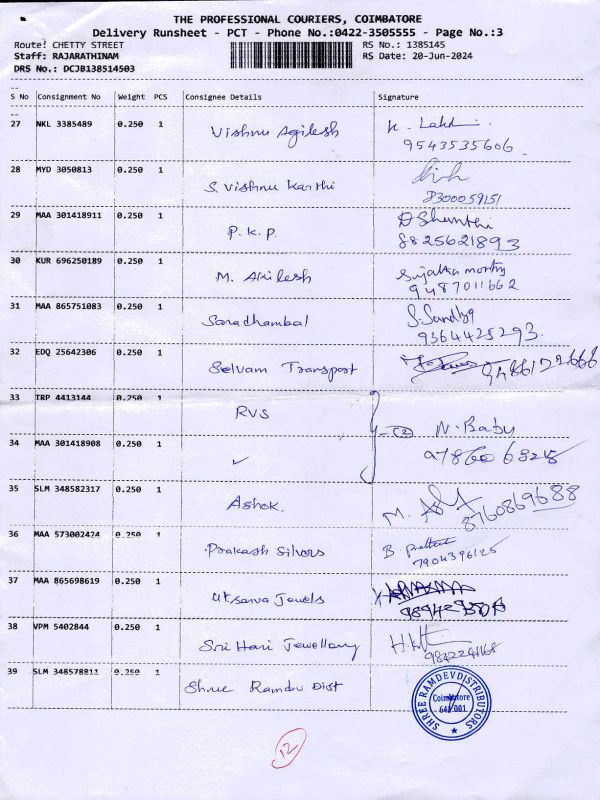 THE PROFESSIONAL COURIERS, COIMBATORE
Delivery Runsheet - PCT - Phone No.:0422-3505555 - Page No.:3
Route: CHETTY STREET RS No.: 1385145
Staff: RAJARATHINAM RS Date: 20-Jun-2024
DRS No.: DCJB138514503
S No Consignment No Weight PCS Consignee Details Signature
27 NKL 3385489 0.250 1 Vishnu Agilesh K. Lakshmi
9543535606
28 MYD 3050813 0.250 1 S. Vishnu Karthi
8300059151
29 MAA 301418911 0.250 1 P. K. P. D Shanthi
8825621893
30 KUR 696250189 0.250 1 M. Akilesh Sujatha morthy
9487011662
31 MAA 865751083 0.250 1 Saradhambal S. Sandya
9364425293
32 EDQ 25642306 0.250 1 Selvam Transport
33 TRP 4413144 0.250 1 RVS N. Babu
34 MAA 301418908 0.250 1 ✓
35 SLM 348582317 0.250 1 Ashok. M.
8760869688
36 MAA 573002424 0.250 1 Prakash Silvers B.
7904396125
37 MAA 865698619 0.250 1 Utsava Jewels
38 VPM 5402844 0.250 1 Sri Hari Jewellary
9842241168
39 SLM 348578811 0.250 1 Shree Ramdev Dist
SHREE RAMDEV DISTRIBUTORS
Coimbatore
641 001.
12